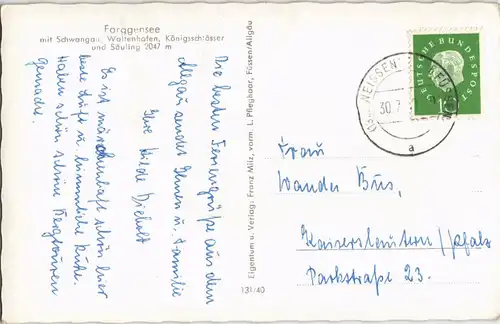 Forggensee
mit Schwangau, Waltenhofen, Königsschlösser
und Säuling 2047 m
Die besten Feriengrüße aus dem
Allgäu sendet Ihnen u. Familie
Ihre Hilde
Es ist märchenhaft schön hier
beste Luft u. himmlische Ruhe.
Haben schon schöne Bergtouren
gemacht.
Eigentum u. Verlag: Franz Milz, vorm. L. Pfleghaar, Füssen/Allgäu
131/40
WEISSEN
30.7
a
DEUTSCHE BUNDESPOST
10
Frau
Wander Bus,
Kaiserslautern/Pfalz
Parkstraße 23.